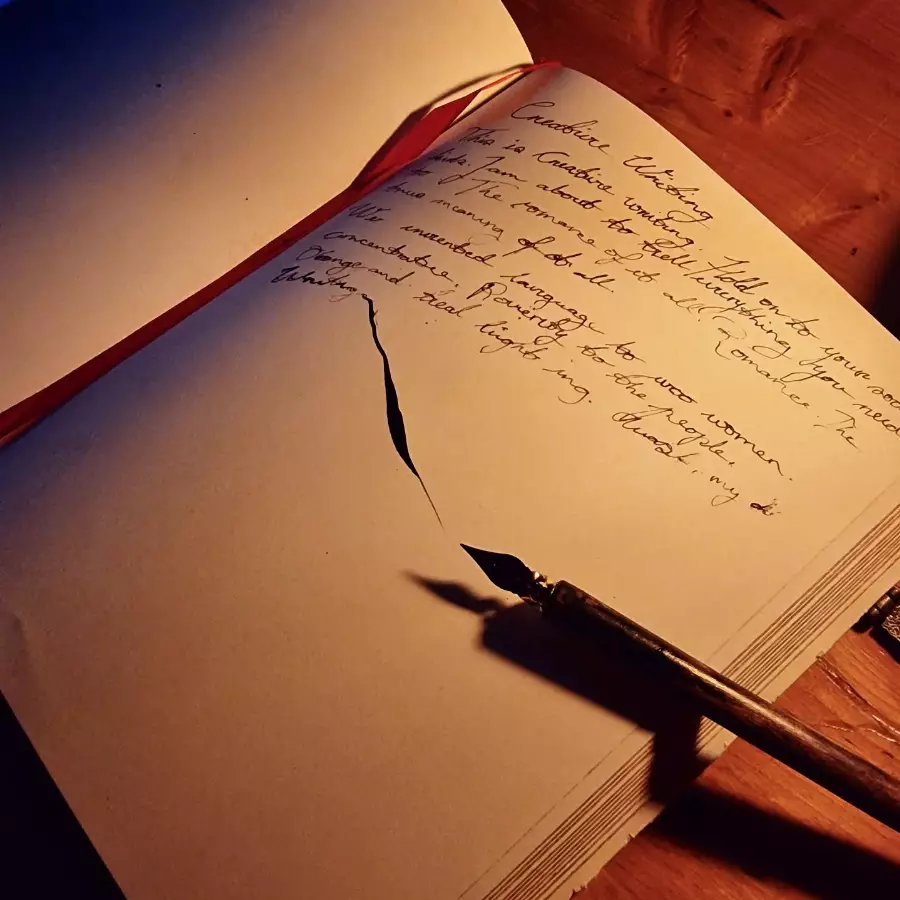 Creative Writing
This is Creative writing. Hold on to your
I am about to tell everything you need
to The romance of it all. Romance. The
true meaning of all.
We invented language to woo women.
concentrate. to the people.
Orange and teal light ing. my
Writing